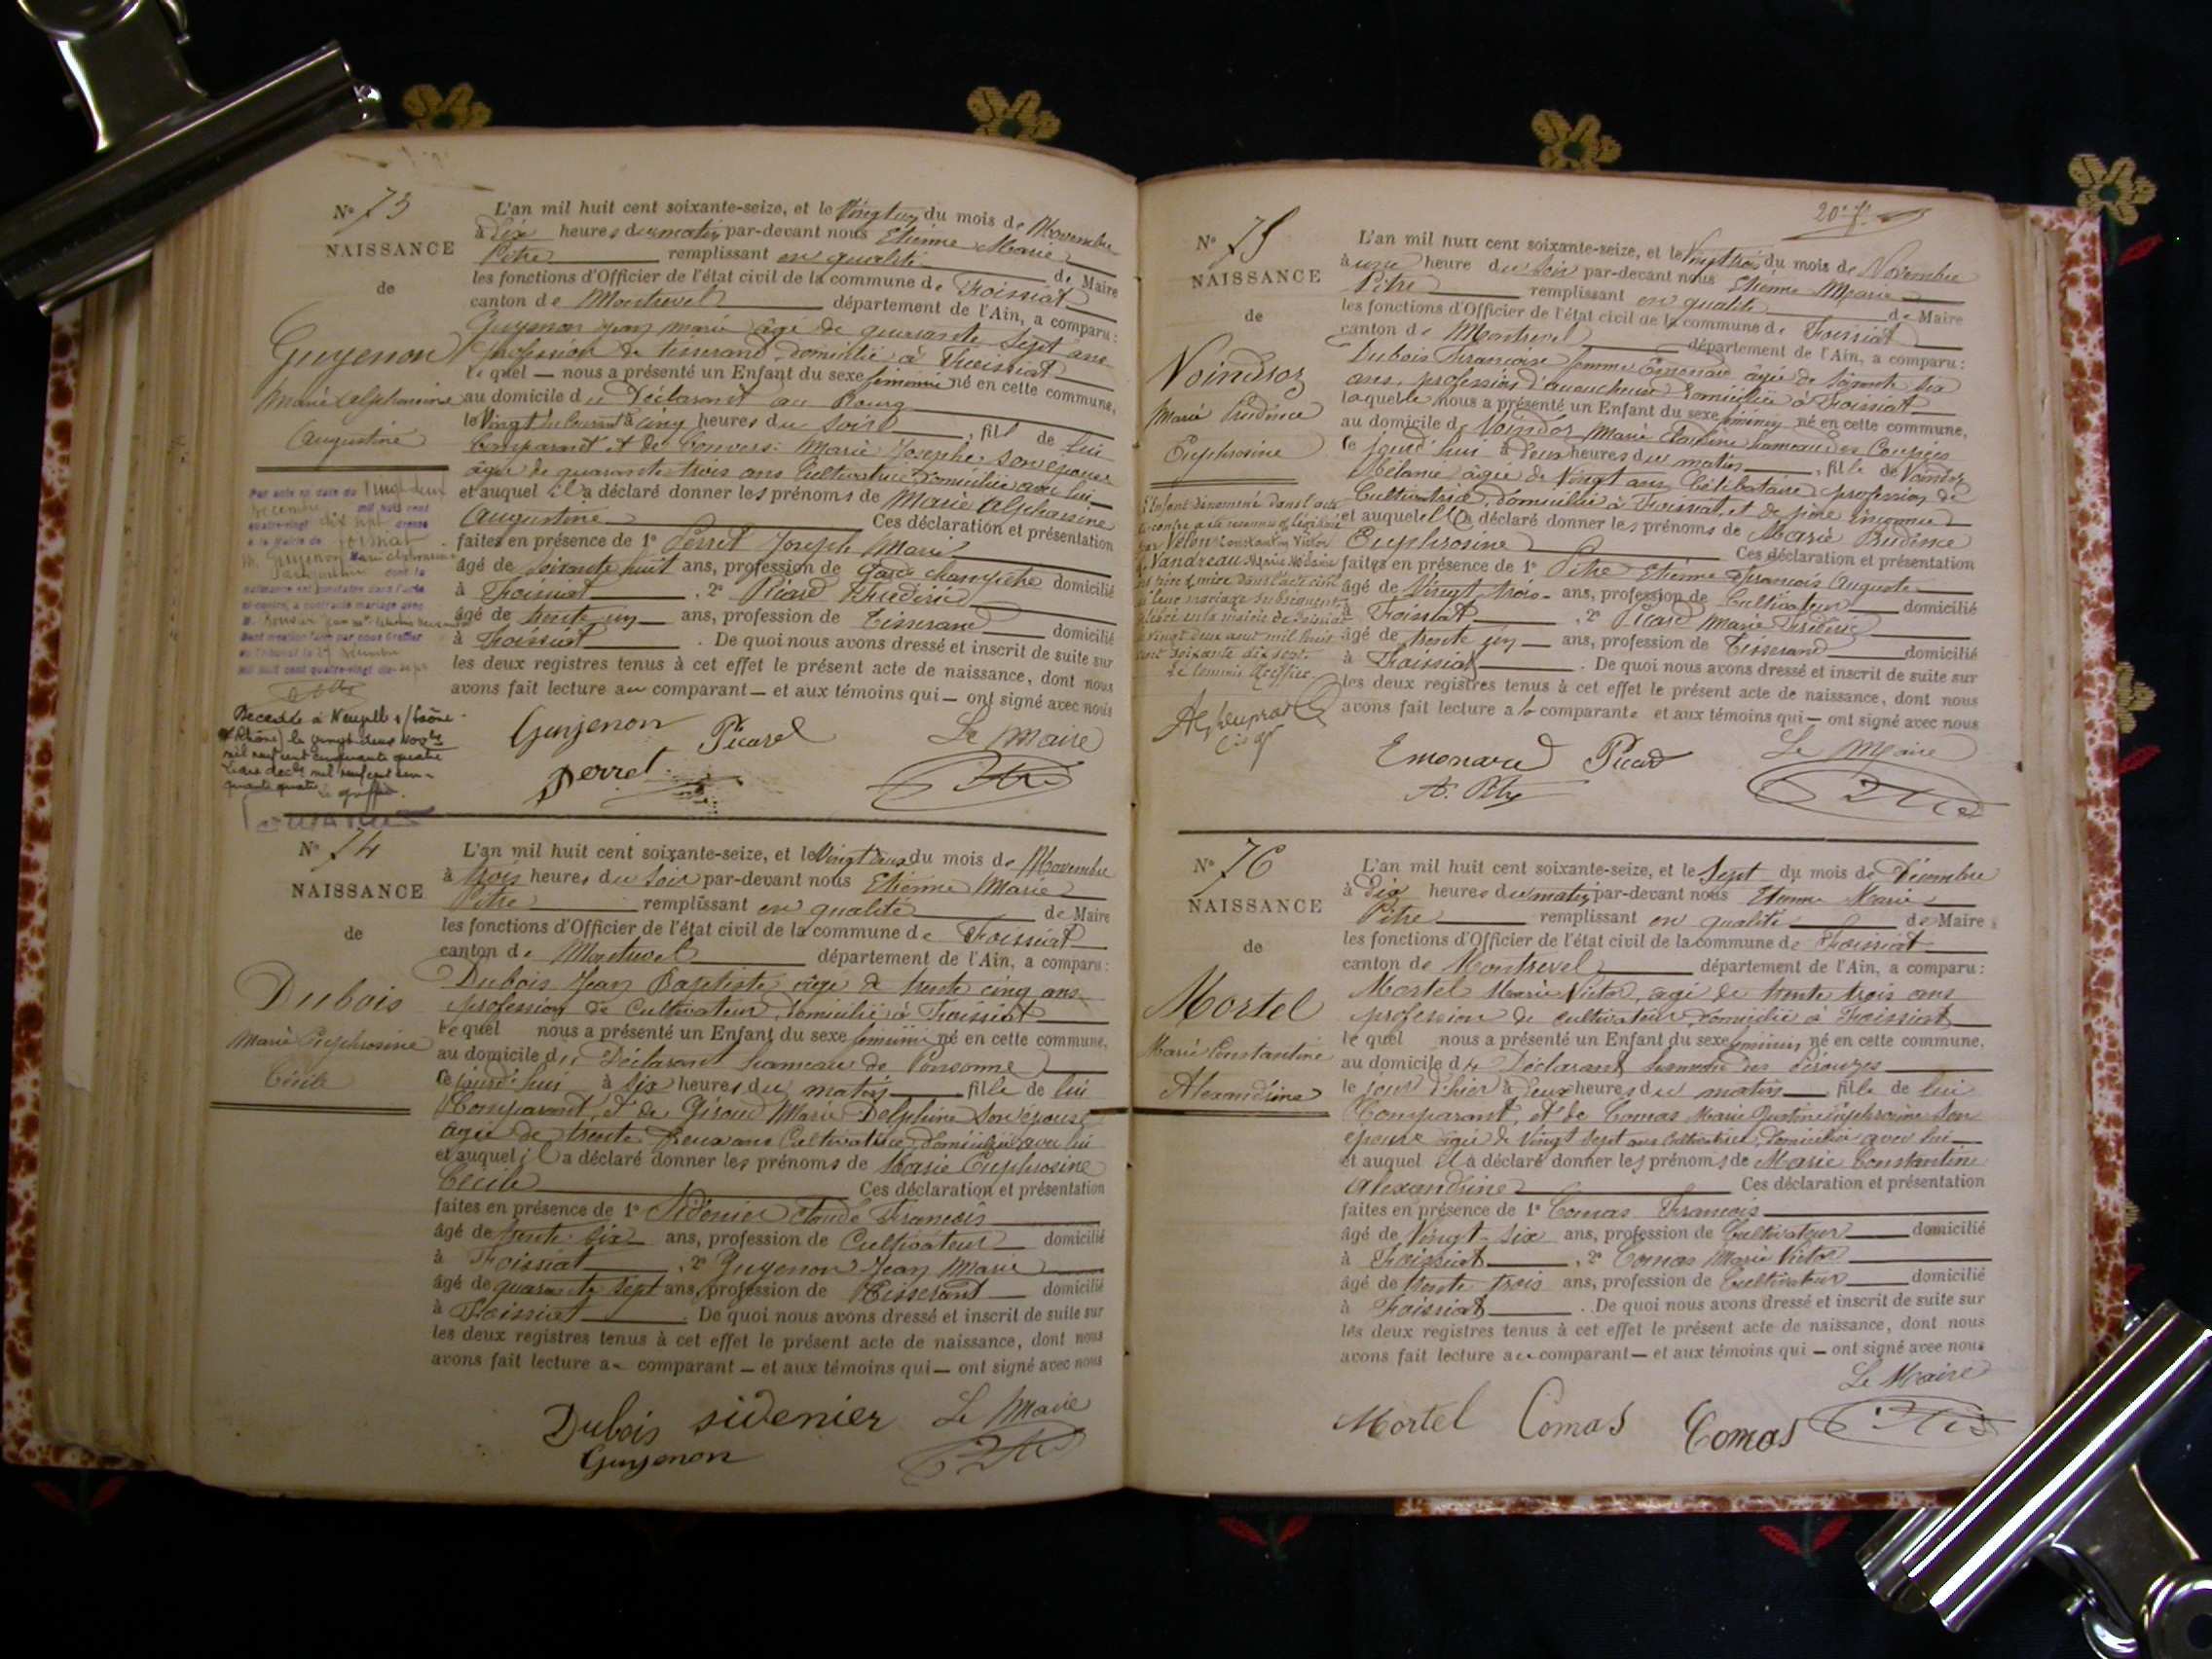 N° 73
NAISSANCE
de
Guyenon
Marie Alphonsine
Augustine
L'an mil huit cent soixante-seize, et le Vingt un du mois de Novembre
à dix heures du matin par-devant nous Etienne Marie
Pitre remplissant en qualité de Maire
les fonctions d'Officier de l'état civil de la commune de Foissiat
canton de Montrevel département de l'Ain, a comparu:
Guyenon Jean Marie âgé de quarante sept ans
profession de tisserand, domicilié à Foissiat
lequel nous a présenté un Enfant du sexe féminin né en cette commune,
au domicile du Déclarant au Bourg
le Vingt du Courant à cinq heures du soir, fille de lui
Comparant et de Convers Marie Josephe son épouse
âgée de quarante trois ans Cultivatrice domiciliée avec lui
et auquel il a déclaré donner les prénoms de Marie Alphonsine
Augustine Ces déclaration et présentation
faites en présence de 1° Perret Joseph Marie
âgé de soixante huit ans, profession de Garde champêtre domicilié
à Foissiat, 2° Picard Frédéric
âgé de trente un ans, profession de Tisserand domicilié
à Foissiat. De quoi nous avons dressé et inscrit de suite sur
les deux registres tenus à cet effet le présent acte de naissance, dont nous
avons fait lecture au comparant et aux témoins qui ont signé avec nous
Guyenon Picard Le Maire
Perret
Par acte en date du Vingt deux
Décembre mil huit cent
quatre-vingt dix sept dressé
à la Mairie de Foissiat
M. Guyenon Marie Alphonsine
Augustine dont la
naissance est constatée dans l'acte
ci-contre, a contracté mariage avec
Décédée à Neuville s/Saône
(Rhône) le vingt deux Nov.
mil neuf cent cinquante quatre
N° 74
NAISSANCE
de
Dubois
Marie Euphrosine
Cécile
L'an mil huit cent soixante-seize, et le Vingt deux du mois de Novembre
à trois heures du Soir par-devant nous Etienne Marie
Pitre remplissant en qualité de Maire
les fonctions d'Officier de l'état civil de la commune de Foissiat
canton de Montrevel département de l'Ain, a comparu:
Dubois Jean Baptiste âgé de trente cinq ans
profession de Cultivateur, domicilié à Foissiat
lequel nous a présenté un Enfant du sexe féminin né en cette commune,
au domicile du Déclarant hameau de Ponsonne
ce jourd'hui à six heures du matin fille de lui
Comparant, et de Giroud Marie Delphine son épouse
âgée de trente deux ans Cultivatrice, domiciliée avec lui
et auquel il a déclaré donner les prénoms de Marie Euphrosine
Cécile Ces déclaration et présentation
faites en présence de 1° Sidenier Claude François
âgé de trente six ans, profession de Cultivateur domicilié
à Foissiat, 2° Guyenon Jean Marie
âgé de quarante sept ans, profession de Tisserant domicilié
à Foissiat. De quoi nous avons dressé et inscrit de suite sur
les deux registres tenus à cet effet le présent acte de naissance, dont nous
avons fait lecture au comparant et aux témoins qui ont signé avec nous
Dubois sidenier Le Maire
Guyenon
N° 75
NAISSANCE
de
Voindroz
Marie Prudence
Euphrosine
L'an mil huit cent soixante-seize, et le Vingt trois du mois de Novembre
à une heure du Soir par-devant nous Etienne Marie
Pitre remplissant en qualité de Maire
les fonctions d'Officier de l'état civil de la commune de Foissiat
canton de Montrevel département de l'Ain, a comparu:
Dubois Françoise femme Emonard âgée de soixante six
ans, profession d'accoucheuse domiciliée à Foissiat
laquelle nous a présenté un Enfant du sexe féminin né en cette commune,
au domicile de Voindroz Marie Claudine hameau des
ce jourd'hui à deux heures du matin, fille de Voindroz
Mélanie âgée de Vingt ans, Célibataire profession de
Cultivatrice, domiciliée à Foissiat, et de père inconnu
et auquel elle a déclaré donner les prénoms de Marie Prudence
Euphrosine Ces déclaration et présentation
faites en présence de 1° Pitre Etienne François Auguste
âgé de Vingt trois ans, profession de Cultivateur domicilié
à Foissiat, 2° Picard Marie Frédéric
âgé de trente un ans, profession de Tisserand domicilié
à Foissiat. De quoi nous avons dressé et inscrit de suite sur
les deux registres tenus à cet effet le présent acte de naissance, dont nous
avons fait lecture à la comparante et aux témoins qui ont signé avec nous
Emonard Picard Le Maire
L'Enfant dénommé dans l'acte
ci-contre a été reconnu et légitimé
par Velon Constantin Victor
ses père & mère dans l'acte civil
de leur mariage subséquent
célébré en la mairie de Foissiat
le vingt deux août mil huit
cent soixante dix sept.
Le commis Greffier
N° 76
NAISSANCE
de
Mortel
Marie Constantine
Alexandrine
L'an mil huit cent soixante-seize, et le Sept du mois de Décembre
à Dix heures du matin par-devant nous Etienne Marie
Pitre remplissant en qualité de Maire
les fonctions d'Officier de l'état civil de la commune de Foissiat
canton de Montrevel département de l'Ain, a comparu:
Mortel Marie Victor, âgé de trente trois ans
profession de cultivateur, domicilié à Foissiat
lequel nous a présenté un Enfant du sexe féminin né en cette commune,
au domicile du Déclarant hameau des Pérouzes
le jour d'hier à deux heures du matin fille de lui
Comparant, et de Comas Marie Justine Euphrosine son
épouse âgée de Vingt sept ans Cultivatrice, domiciliée avec lui
et auquel il a déclaré donner les prénoms de Marie Constantine
Alexandrine Ces déclaration et présentation
faites en présence de 1° Comas François
âgé de Vingt six ans, profession de Cultivateur domicilié
à Foissiat, 2° Comas Marie Victor
âgé de trente trois ans, profession de Cultivateur domicilié
à Foissiat. De quoi nous avons dressé et inscrit de suite sur
les deux registres tenus à cet effet le présent acte de naissance, dont nous
avons fait lecture au comparant et aux témoins qui ont signé avec nous
Le Maire
Mortel Comas Comas